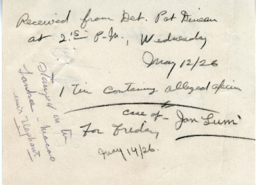 Received from Det. Pat Dineen
at 2 15 P.M., Wednesday
May 12/26
1 Tin containing alleged opium
case of Jon Lum
For Friday,
May 14/26.
Stamped on tin
Macao